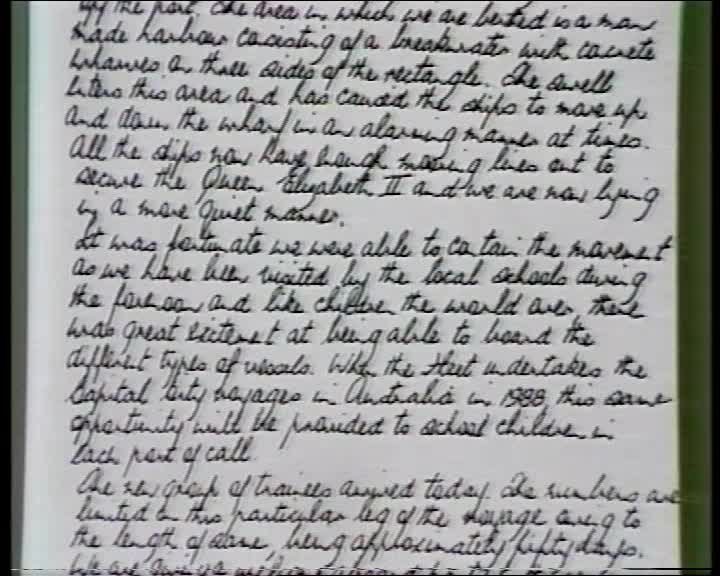 off the port. The area in which we are berthed is a man
made harbour cocisting of a breakwater with cocrete
wharves on three sides of the rectangle. The swell
enters this area and has caused the ships to move up
and down the wharf in an alarming manner at times.
All the ships now have enough mooring lines out to
secure the Queen Elizabeth II and we are now lying
in a more quiet manner.
It was fortunate we were able to contain the movement
as we have been visited by the local schools during
the forenoon and like children the world over, there
was great excitement at being able to board the
different types of vessels. When the fleet undertakes the
Capital City voyages in Australia in 1988, this same
opportunity will be provided to school children in
each port of call.
One new group of trainees arrived today. The numbers are
limited on this particular leg of the voyage owing to
the length of same, being approximately fifty days.
We are